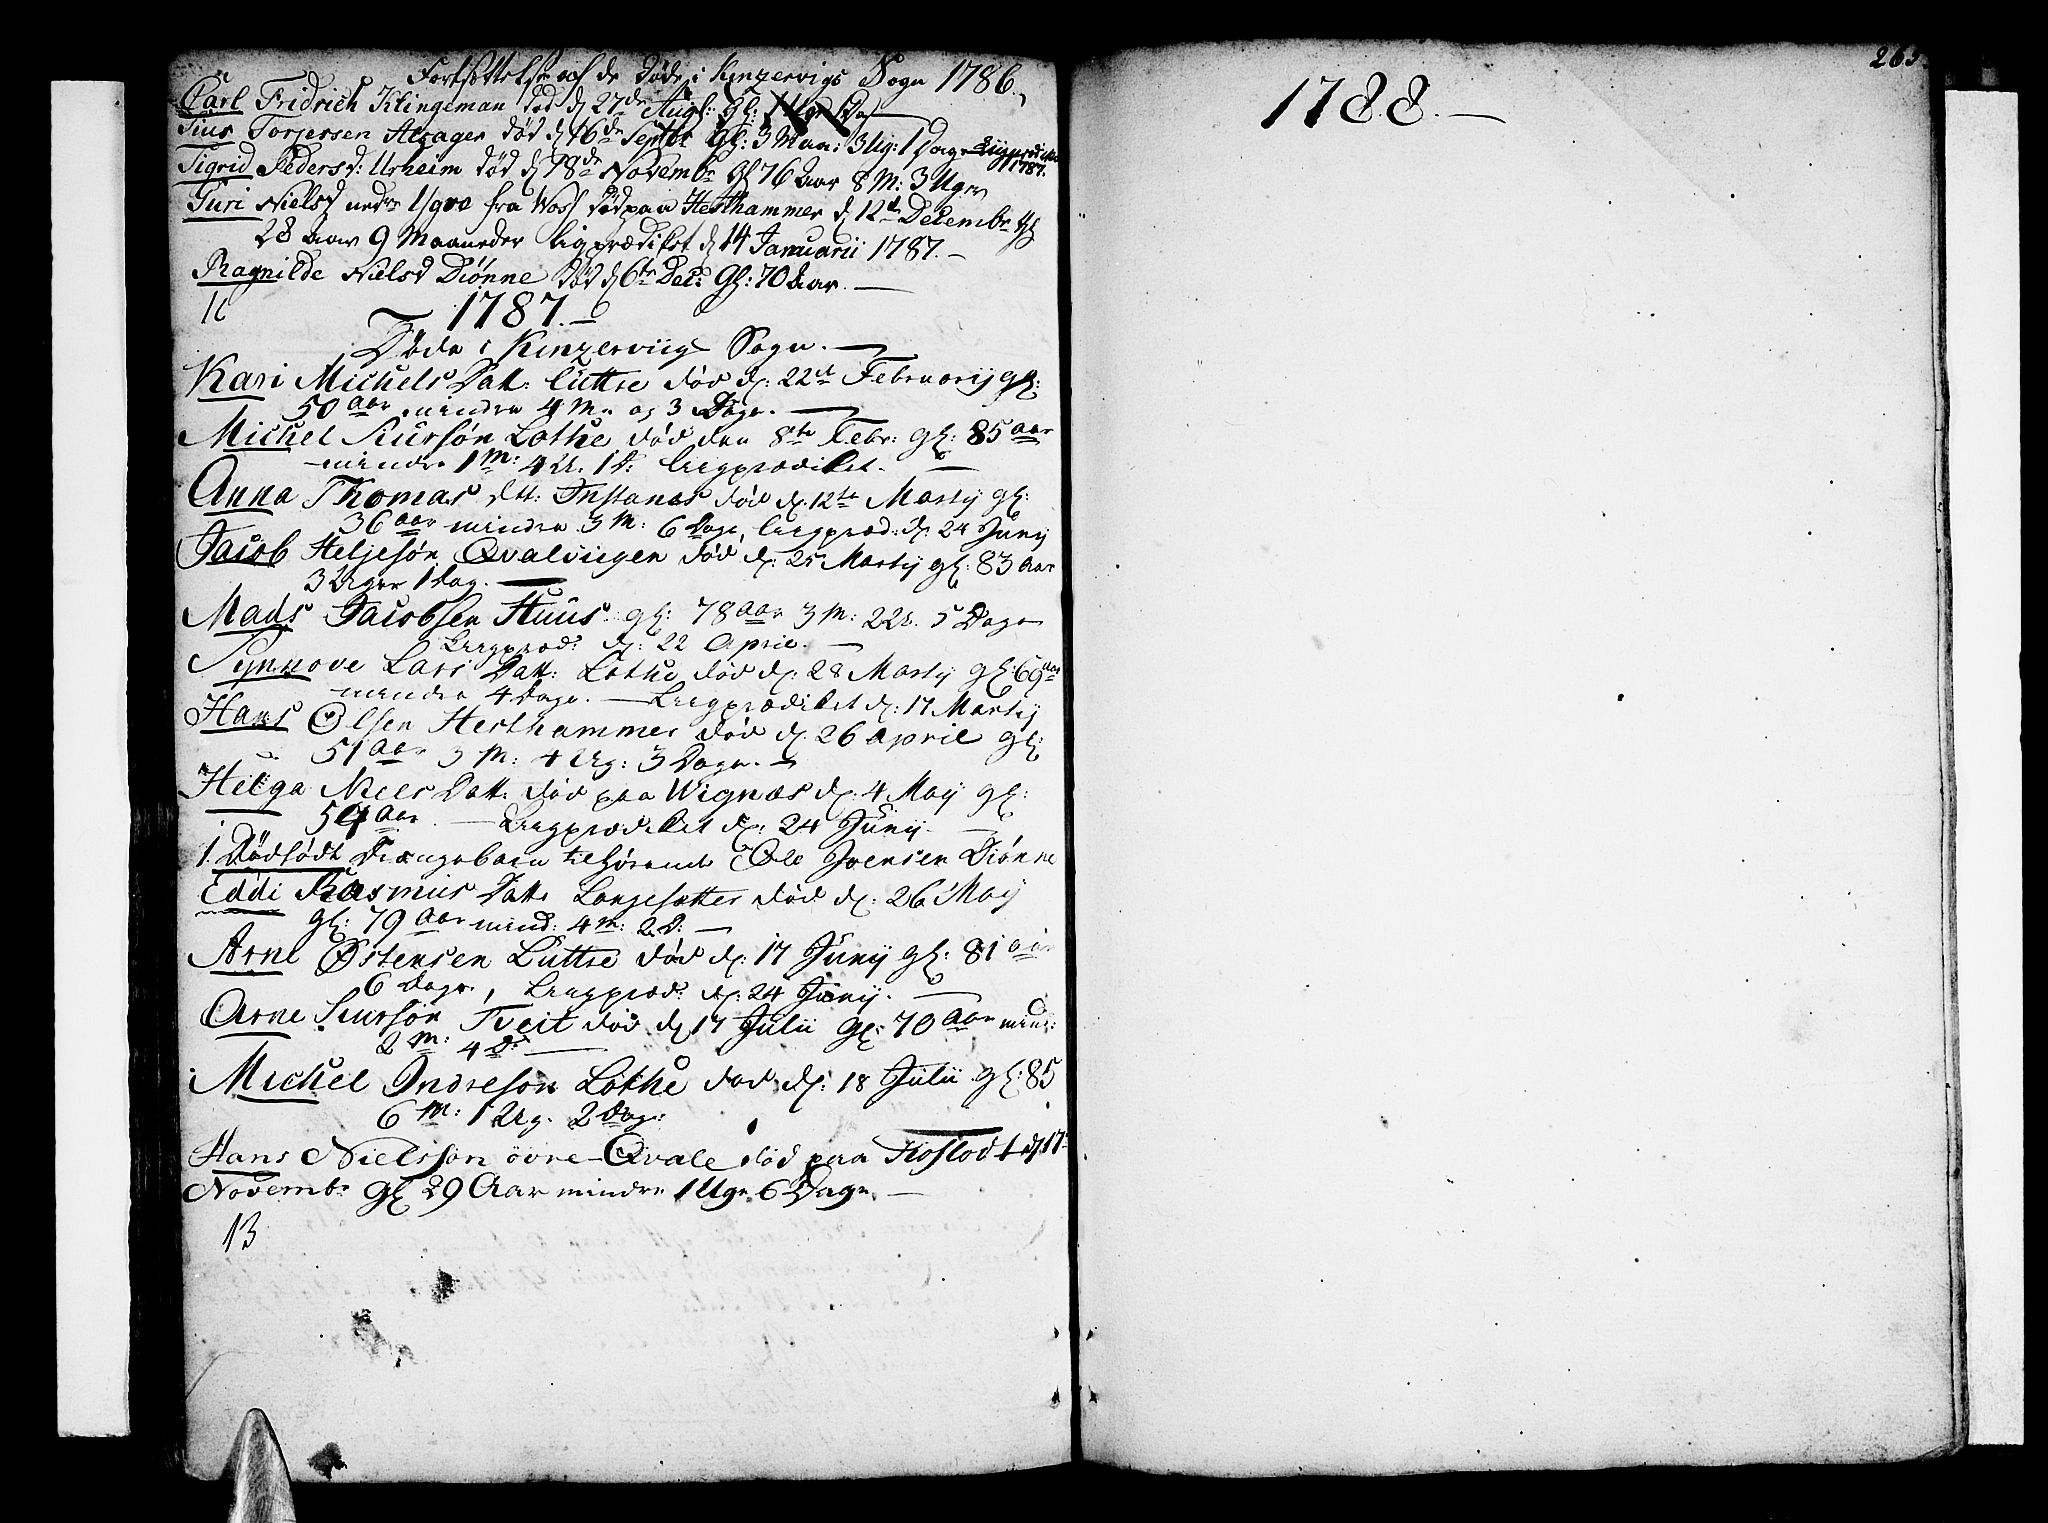 Fortsættelse af de døde i Kinzervigs Sogn 1786.
Carl Fridrich Klingeman død d 27de Augt: gl:
Siur Torjersen Alsager død d 16de Septbr gl: 3 Maan: 3 Ug: 1 Dag
1787.
Sigrid Pedersd: Urheim død d 18de Novembr gl 76 Aar 8 M: 3 Uger
Turi Nielsd nedre fra Woss død paa Hesthammer d 12te Decembr gl
28 aar 9 Maaneder ligprædiket d 14 Januarii 1787. -
Ragnilde Nielsd Diønne død d 6te Dec: gl: 70 Aar. -
1787. -
Døde i Kinzerviig Sogn. -
Kari Michels Datt: Luttre død d: 22de Februarij gl:
50 aar mindre 4 M. og 3 Dage. -
Michel Siursøn Lothe død den 8te Febr: gl: 85 aar
mindre 1 M: 4 U. 1 D: Liigprædiket. -
Anna Thomas dtt: Instanes død d. 12te Martij gl:
36 aar mindre 3 M: 6 Dage, Liigpræd: d. 24 Junij
Jacob Heljesøn Qvalviigen død d. 25 Martij gl: 83 aar
3 Uger 1 dag. -
Mads Jacobsen Huus gl: 78 aar 3 M: 2 U. 5 Dage
Liigpræd: d. 22 April. -
Synnove Lars Datt: Lothe død d. 28 Martij gl: 69 aar
mindre 4 Dage. - Liigprædiket d: 17 Martij
Hans Olsen Hesthammer død d. 26 April gl:
51 aar 3 M: 4 Ug: 3 Dage. -
Helga Niels Datt. død paa Wignæs d: 4 Maij gl:
54 aar. - Liigprædiket d: 24 Junij. -
1. Dødfødt Drengebarn tilhørende Ole Joensen Diønne
Eddi Rasmus Datt. Langesætter død d: 26 Maij
gl: 79 aar mind: 4 M: 2 D: -
Arne Østensen Luttre død d: 17 Junij gl: 81 aar
6 Dage, Liigpræd: d: 24 Junij. -
Arne Siursøn Tveit død d 17 Julii gl: 70 aar mind:
2 M: 4 D: -
Michel Indresøn Lothe død d: 18 Julii gl: 85
6 M: 1 Ug. 2 Dage:
Hans Nielssøn øvre-Qvale død paa d. 17:
Novembr gl 29 Aar mindre 1 Uge 6 Dage. -
13
265
1788. -